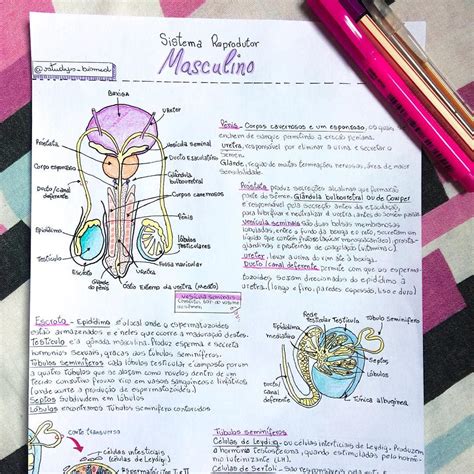 Sistema Reprodutor
Masculino
@studys_biomed
Bexiga
Ureter
Próstata
Vesícula seminal
Corpo esponjoso
Ducto Ejaculatório
Ducto/canal
deferente
Glândula
bulbouretral
Pênis
Uretra
Epidídimo
Túbulos
testiculares
Testículo
Fossa navicular
Escroto
Glande
do pênis
Óstio Externo da uretra (meato)
Pênis - Corpos cavernosos e um esponjoso, os quais
enchem de sangue permitindo a ereção peniana.
uretra, responsável por eliminar a urina e secretar o
sêmen.
Glande, região de muitas terminações nervosas, área de maior
sensibilidade.
Próstata produz secreções alcalinas que formarão
parte do sêmen. Glândula bulbouretral ou de Cowper
é responsável pela secreção antes da ejaculação,
para lubrificar e neutralizar a uretra, antes do sêmen passar
vesícula seminais são duas bolsas membranosas
lobuladas, entre o fundo da bexiga e o reto, secretam um
líquido que contém frutose (açúcar monossacarídeo), prosta-
glandinas e proteínas de coagulação (semilunar).
ureter, levar a urina do rim até a bexiga.
Ducto/canal deferente, permite com que os esperma-
tozoides sejam direcionados do epidídimo a
uretra. (longo e fino, paredes espessas, liso e duro)
vesícula seminais
Escroto - Epidídimo é local onde o espermatozoides
estão armazenados e neles que ocorre a maturação destes.
Testículo é a gônada masculina. Produz esperma e secreta
hormônios sexuais, graças aos túbulos seminíferos.
Túbulos seminíferos cada lóbulos testicular é composto por um
a quatro túbulos que se alojam como novelos dentro de um
tecido conjuntivo frouxo rico em vasos sanguíneos e linfáticos
(onde ocorre a produção de espermatozoides).
Septos Subdividem em lóbulos
lóbulos encontramos Túbulos seminíferos contorcidos
Rede
testicular
Testículo
Túbulo seminífero
Epidídimo
mediastino
Septos
Lóbulos
Túnica albugínea
Corte transverso
células intersticiais
(células de Leydig)
Túbulos seminíferos
Células de Leydig, ou células intersticiais de Leydig. Produzem
a hormônio testosterona, quando estimuladas pelo hormônio
luteinizante (LH).
Células de Sertoli